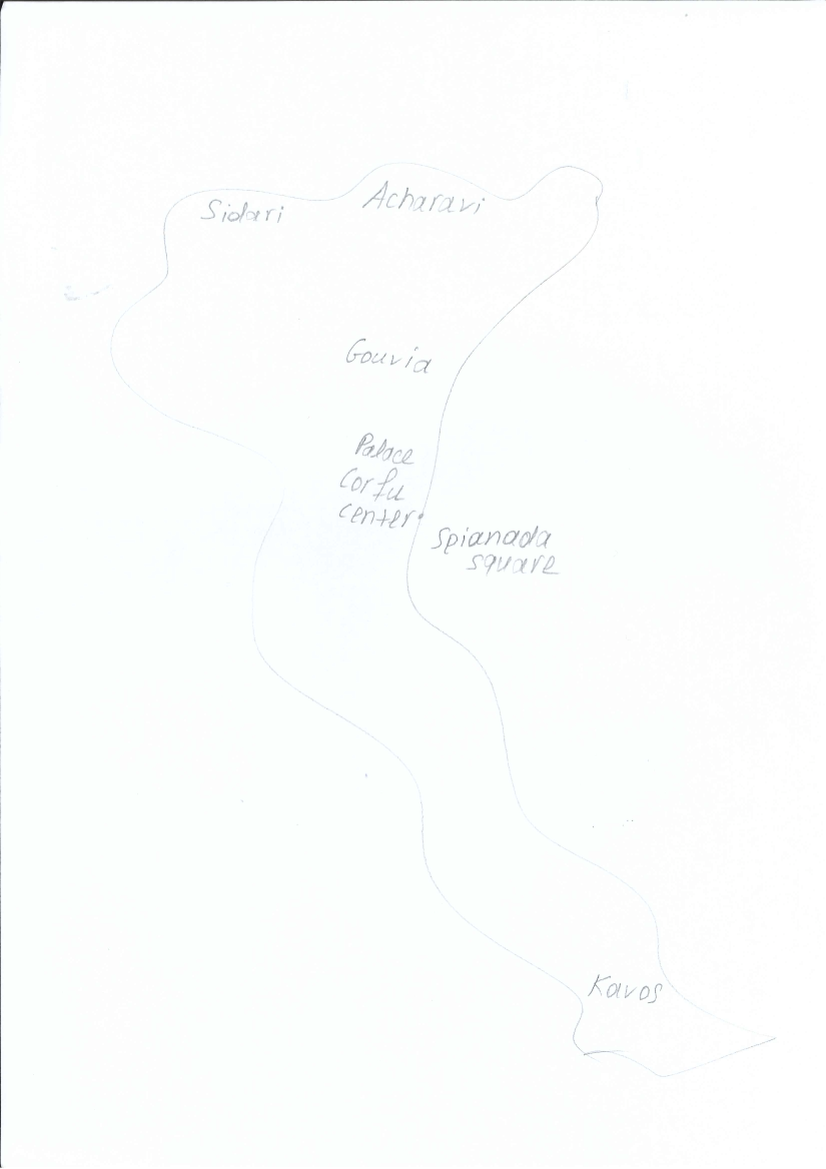 Sidari
Acharavi
Gouvia
Palace
Corfu
center
Spianada
square
Kavos